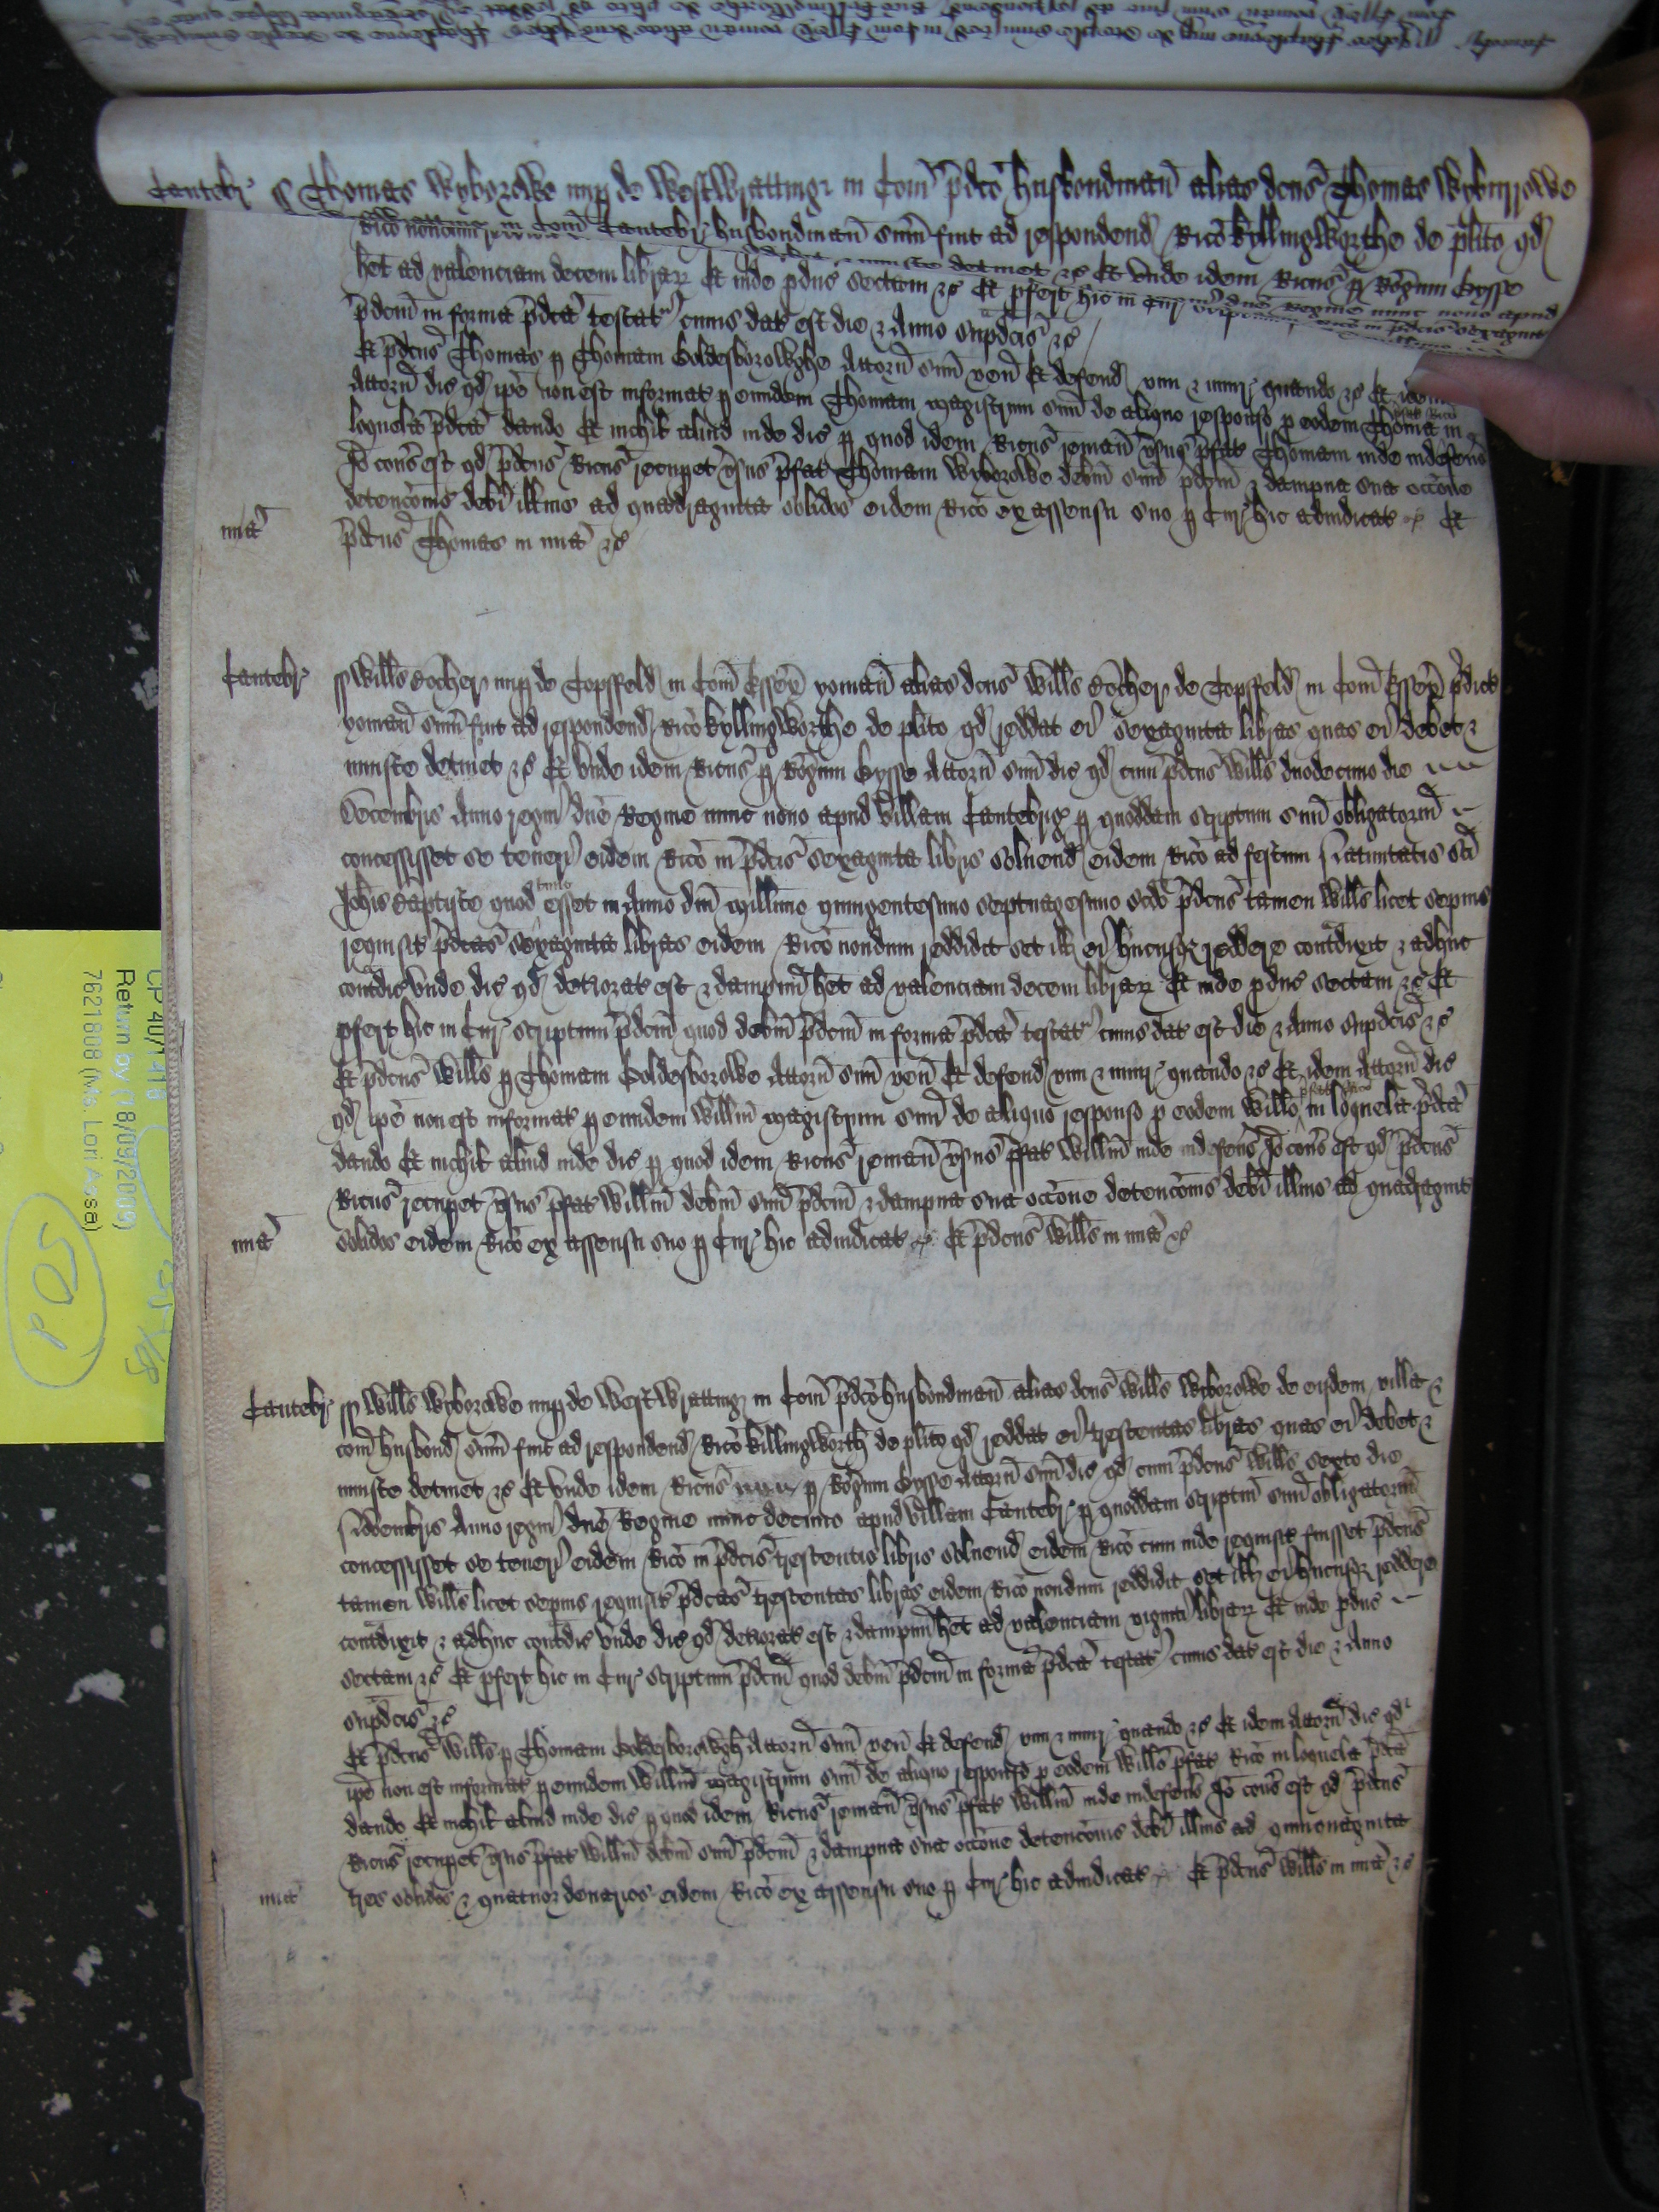 Cantebr ss Thomas Wyborowe nup de Westwrattinge in Com p̄dco husbondman̄ alias dcus Thomas Wyburrowe
Cantebr husbondman̄ sum̄ fuit ad respondend Rico Kyllingworthe de plito qd
detinet &c Et unde idem Ricus p Rogm̄ Gysse
het ad valenciam decem librar Et inde pduc sectam &c Et pfert hic in Cur
p̄dcm̄ in forma p̄dca testat cuius dat est die & Anno sup̄dcis &c
Et p̄dcus Thomas p Thomam Goldesborowghe Attorn̄ suu ven̄ Et defend vim & iniur quando &c Et idem
Attorn̄ dic qd ipe non est informat p eundem Thomam magistrum suu de aliquo responso p eodem Thoma p̄fat Rico in
loquela p̄dca dando Et nichil aliud inde dic p quod idem Ricus reman̄ vsus p̄fat Thomam inde indefens
Io cons est qd p̄dcus Ricus recupet vsus p̄fat Thomam Wyborowe debm̄ suu p̄dcm̄ & dampna sua occōne
detencōnis debi illius ad quadraginta solidos eidem Rico ex assensu suo p Cur hic adiudicat Et
mia p̄dcus Thomas in mia &c
Cantebr ss Wills Rocher nup de Topsfeld in Com̄ Essex yoman̄ alias dcus Wills Rocher de Topsfeld in Com̄ Essex p̄dict
yoman̄ sum̄ fuit ad respondend Rico Kyllingworthe de plito qd reddat ei sexaginta libras quas ei debet &
iniuste detinet &c Et unde idem Ricus p Rogm̄ Gysse Attorn̄ suu dic qd cum p̄dcus Wills duodecimo die
Decembris Anno regni dn̄e Regine nunc nono apud villam Cantebrig p quoddam scriptum suu obligatoriu
concessisset se teneri eidem Rico in p̄dcis sexaginta libris solvend eidem Rico ad festum Nativitatis sci
Johis Baptiste quod tunc esset in Anno dni millimo quingentesimo septuagesimo scdo p̄dcus tamen Wills licet sepius
requisit p̄dcas sexaginta libras eidem Rico nondum reddidit set ill ei hucusq reddere contdixit & adhuc
contdic unde dic qd detiorat est & dampnu het ad valenciam decem librar Et inde pduc sectam &c Et
pfert hic in Cur scriptum p̄dcm̄ quod debm̄ p̄dcm̄ in forma p̄dca testat cuius dat est die & Anno sup̄dcis &c
Et p̄dcus Wills p Thomam Goldesborowe Attorn̄ suu ven̄ Et defend vim & iniur quando &c Et idem Attorn̄ dic
qd ipe non est informat p eundem Willm̄ magistrum suu de aliquo responso p eodem Willo p̄fat Rico in loquela p̄dca
dando Et nichil aliud inde dic p quod idem Ricus reman̄ vsus p̄fat Willm̄ inde indefens Io cons est qd p̄dcus
Ricus recupet vsus p̄fat Willm̄ debm̄ suu p̄dcm̄ & dampna sua occōne detencōnis debi illius ad quadraginta
mia solidos eidem Rico ex assensu suo p Cur hic adiudicat Et p̄dcus Wills in mia &c
Cantebr ss Wills Wyborowe nup de Westwratting in Com̄ p̄dco husbondman̄ alias dcus Wills Wyborowe de eisdem villa &
com̄ husbond sum̄ fuit ad respondend Rico Killingworth de plito qd reddat ei trescentas libras quas ei debet &
iniuste detinet &c Et unde idem Ricus p Rogm̄ Gysse Attorn̄ suu dic qd cum p̄dcus Wills sexto die
Novembris Anno regni dn̄e Regine nunc decimo apud villam Cantebr p quoddam scriptm̄ suu obligatoriu
concessisset se teneri eidem Rico in p̄dcis trescentis libris solvend eidem Rico cum inde requisit fuisset p̄dcus
tamen Wills licet sepius requisit p̄dcas trescentas libras eidem Rico nondum reddidit set ill ei hucusq reddere
contdixit & adhuc contdic unde dic qd detiorat est & dampnu het ad valenciam viginti librar Et inde pduc
sectam &c Et pfert hic in Cur scriptum p̄dcm̄ quod debm̄ p̄dcm̄ in forma p̄dca testat cuius dat est die & Anno
sup̄dcis &c
Et p̄dcus Wills p Thomam Goldesborowgh Attorn̄ suu ven̄ Et defend vim & iniur quando &c Et idem Attorn̄ dic qd
ipe non est informat p eundem Willm̄ magistrum suu de aliquo responso p eodem Willo p̄fat Rico in loquela p̄dca
dando Et nichil aliud inde dic p quod idem Ricus reman̄ vsus p̄fat Willm̄ inde indefens Io cons est qd p̄dcus
Ricus recupet vsus p̄fat Willm̄ debm̄ suu p̄dcm̄ & dampna sua occōne detencōnis debi illius ad quinquaginta
mia tres solidos & quatuor denarios eidem Rico ex assensu suo p Cur hic adiudicat Et p̄dcus Wills in mia &c
CP 40/1418
Return by (18/09/2009)
7621808 (Ms. Lori Assa)